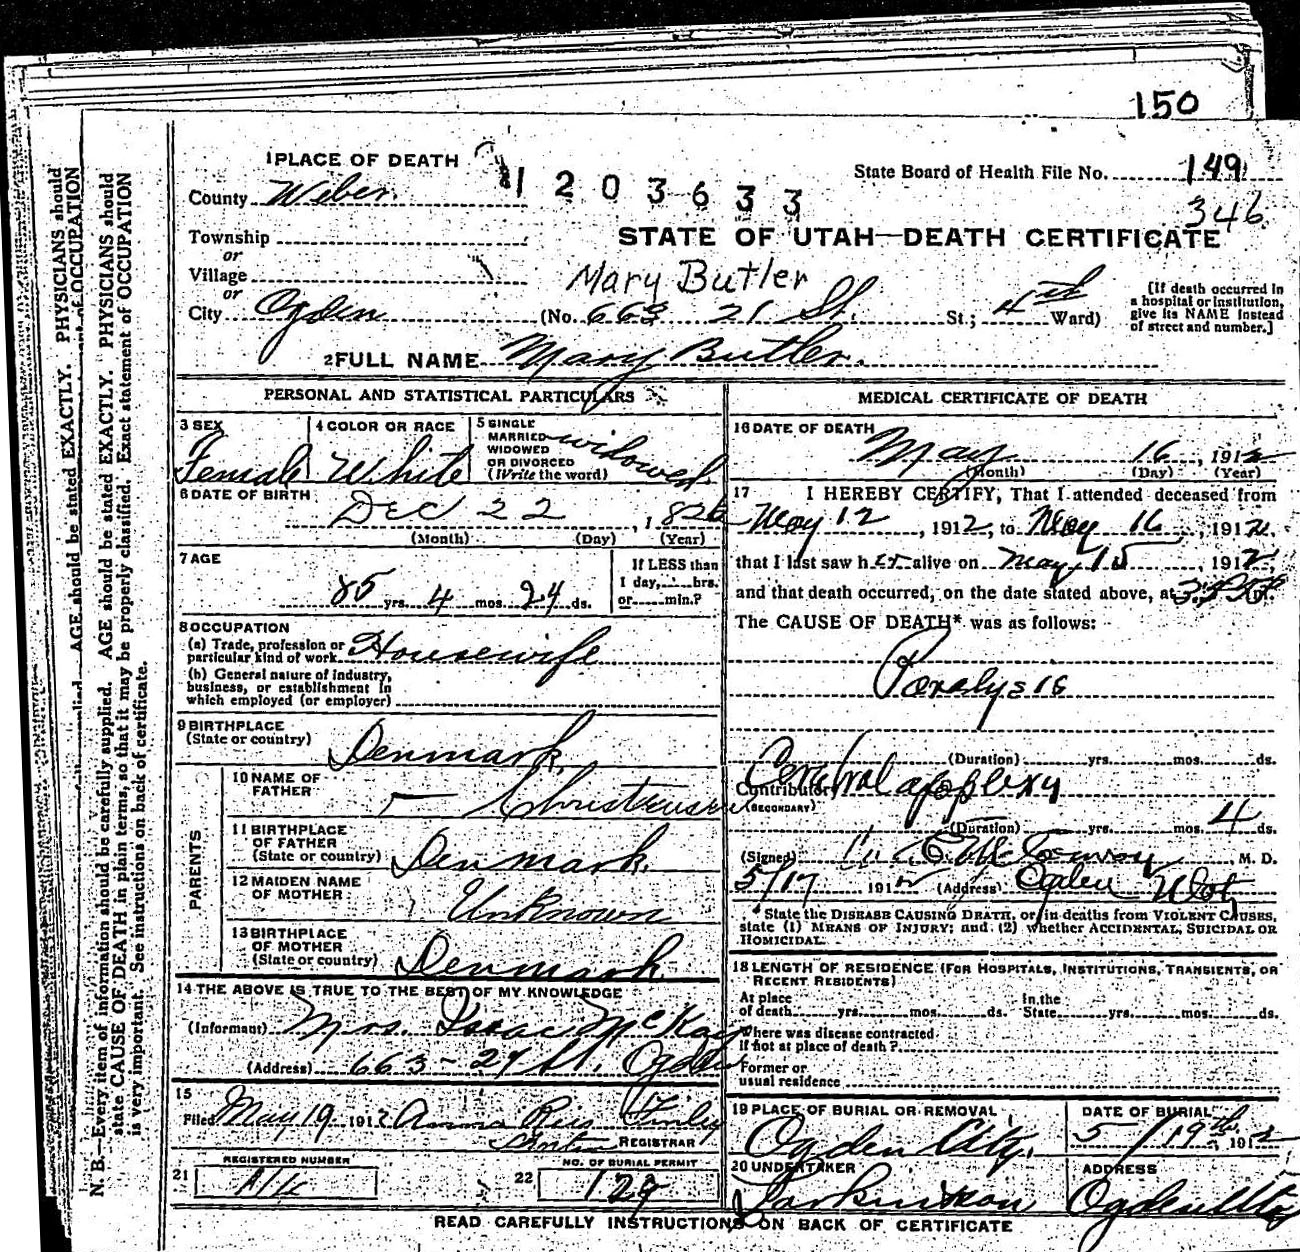 150
1 PLACE OF DEATH
1203633
State Board of Health File No. 149
346
County Weber.
Township
or
STATE OF UTAH—DEATH CERTIFICATE
Village
Mary Butler
or
City Ogden (No. 663 21 St. St.; 4th Ward)
[If death occurred in a hospital or institution, give its NAME instead of street and number.]
2 FULL NAME Mary Butler.
PERSONAL AND STATISTICAL PARTICULARS
3 SEX Female
4 COLOR OR RACE White
5 SINGLE MARRIED WIDOWED OR DIVORCED (Write the word) widowed
6 DATE OF BIRTH
Dec 22, 1826
(Month) (Day) (Year)
7 AGE
85 yrs. 4 mos. 24 ds.
If LESS than 1 day, hrs. or min.?
8 OCCUPATION
(a) Trade, profession or particular kind of work Housewife
(b) General nature of industry, business, or establishment in which employed (or employer)
9 BIRTHPLACE
(State or country) Denmark.
PARENTS
10 NAME OF FATHER — Christensen
11 BIRTHPLACE OF FATHER (State or country) Denmark.
12 MAIDEN NAME OF MOTHER Unknown
13 BIRTHPLACE OF MOTHER (State or country) Denmark
14 THE ABOVE IS TRUE TO THE BEST OF MY KNOWLEDGE
(Informant) Mrs. Isaac McKay
(Address) 663 - 27 St. Ogden
15
Filed May 19 1912 Anna
REGISTRAR
21 REGISTERED NUMBER
22 NO. OF BURIAL PERMIT
129
MEDICAL CERTIFICATE OF DEATH
16 DATE OF DEATH
May 16, 1912
(Month) (Day) (Year)
17 I HEREBY CERTIFY, That I attended deceased from
May 12, 1912, to May 16, 1912,
that I last saw her alive on May 15, 1912,
and that death occurred, on the date stated above, at
The CAUSE OF DEATH* was as follows:
Paralysis
(Duration) yrs. mos. ds.
Contributory Cerebral apoplexy
(SECONDARY)
(Duration) yrs. mos. 4 ds.
(Signed) M. D.
5/17 1912 (Address) Ogden Utah
* State the DISEASE CAUSING DEATH, or, in deaths from VIOLENT CAUSES,
state (1) MEANS OF INJURY; and (2) whether ACCIDENTAL, SUICIDAL OR
HOMICIDAL.
18 LENGTH OF RESIDENCE (FOR HOSPITALS, INSTITUTIONS, TRANSIENTS, OR
RECENT RESIDENTS)
At place of death yrs. mos. ds. In the State yrs. mos. ds.
Where was disease contracted
If not at place of death?
Former or
usual residence
19 PLACE OF BURIAL OR REMOVAL
Ogden City.
DATE OF BURIAL
5/19th 1912
20 UNDERTAKER
ADDRESS
Ogden Utah
READ CAREFULLY INSTRUCTIONS ON BACK OF CERTIFICATE
N. B.—Every item of information should be carefully supplied. AGE should be stated EXACTLY. PHYSICIANS should
state CAUSE OF DEATH in plain terms, so that it may be properly classified. Exact statement of OCCUPATION
is very important. See instructions on back of certificate.
AGE should be stated EXACTLY. PHYSICIANS should
of OCCUPATION